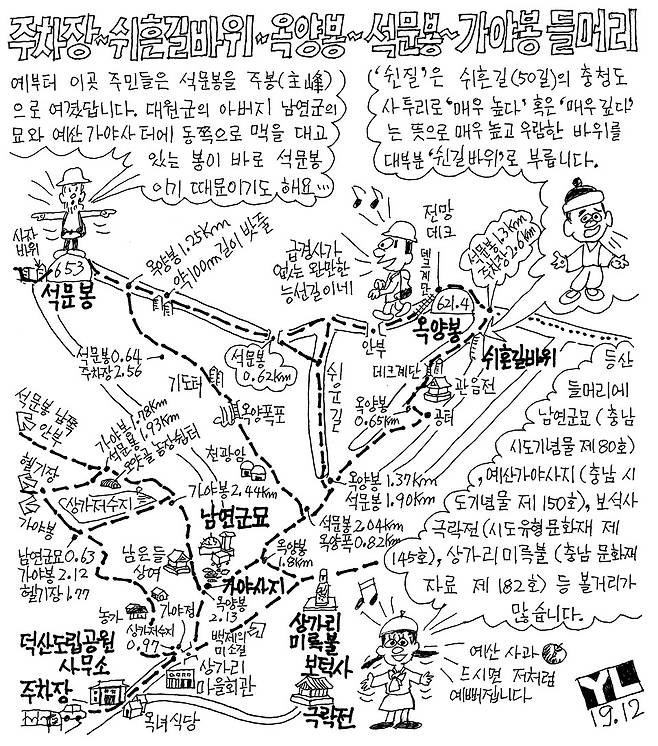 주차장~쉬흔길바위~옥양봉~석문봉~가야봉 들머리
예부터 이곳 주민들은 석문봉을 주봉(主峰)
으로 여겼답니다. 대원군의 아버지 남연군의
묘와 예산가야사 터에 동쪽으로 맥을 대고
있는 봉이 바로 석문봉
이기 때문이기도 해요…
'쉰질'은 쉬흔길(50길)의 충청도
사투리로 '매우 높다' 혹은 '매우 깊다'
는 뜻으로 매우 높고 우람한 바위를
대부분 '쉰길바위'로 부릅니다.
사자
바위
653
석문봉
옥양봉 1.25km
약100m길이 밧줄
급경사가
없는 완만한
능선길이네
전망
데크
데크계단
석문봉 1.3km
주차장 2.6km
621.4
옥양봉
쉬흔길바위
안부
석문봉
0.62km
쉬운길
데크계단
관음전
옥양봉
0.65km
공터
석문봉 0.64
주차장 2.56
기도터
옥양폭포
석문봉 남쪽
안부
가야봉 1.78km
석문봉 1.93km
헬기장
상가저수지
가야봉
천광암
가야봉 2.44km
남연군묘
옥양봉 1.37km
석문봉 1.90km
석문봉 2.04km
옥양폭 0.82km
옥양봉
1.8km
남연군묘 0.63
가야봉 2.12
헬기장 1.77
남은들
상여
가야사지
농가
가야정
옥양봉
2.13
상가저수지
0.97
백제의
미소길
상가리
미륵불
보덕사
극락전
덕산도립공원
사무소
주차장
상가리
마을회관
옥녀식당
등산
들머리에
남연군묘(충남
시도기념물 제80호)
, 예산가야사지(충남 시
도기념물 제150호), 보덕사
극락전(시도유형문화재 제
145호), 상가리미륵불(충남 문화재
자료 제182호) 등 볼거리가
많습니다.
예산 사과
드시면 저처럼
예뻐집니다
YL
19.12